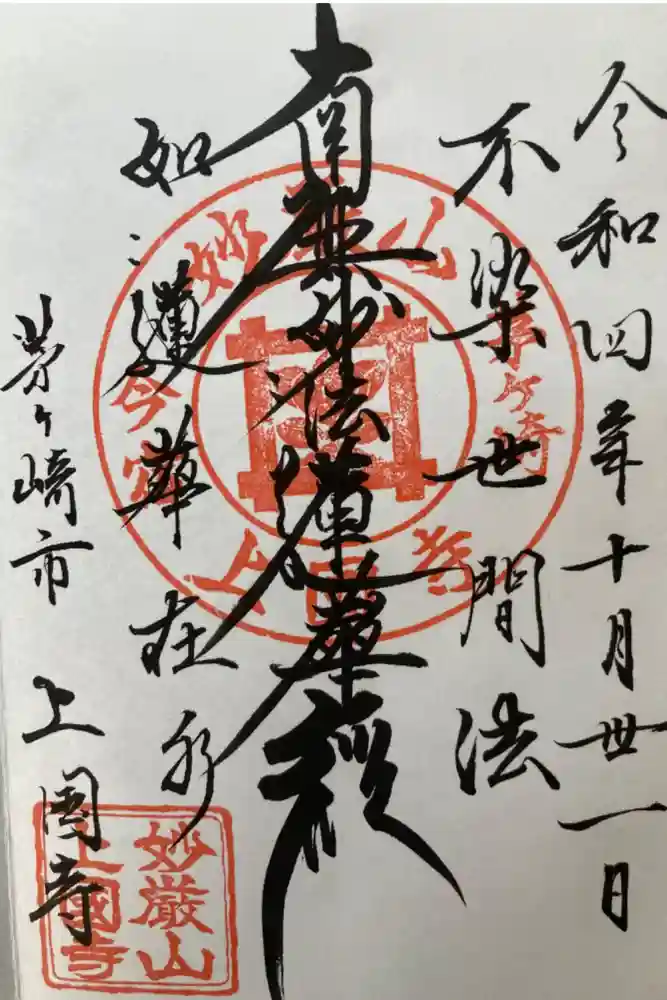 令和四年十月丗一日
不染世間法
南無妙法蓮華経
如蓮華在水
茅ヶ崎市 上國寺
妙厳山
茅ヶ崎
今宿
上國寺
妙厳山
上國寺